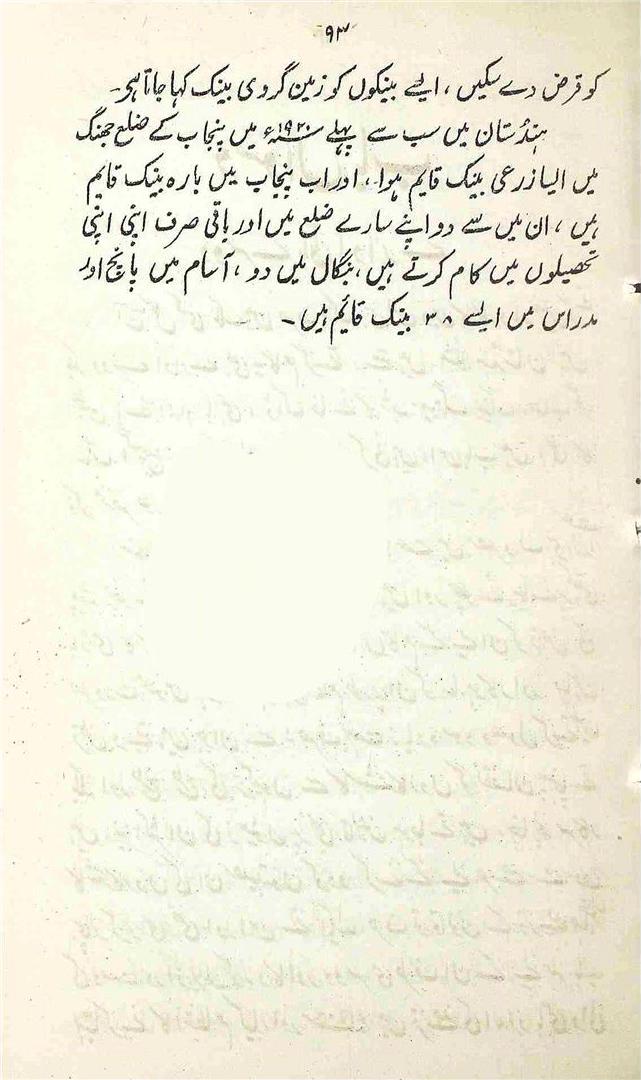 ۹۳
کو قرض دے سکیں، ایسے بینکوں کو زمین گروی بینک کہا جاتا ہی۔
ہندُستان میں سب سے پہلے ۱۹۲۰ء میں پنجاب کے ضلع جھنگ
میں ایسا زرعی بینک قایم ہوا، اور اب پنجاب میں بارہ بینک قایم
ہیں، ان میں سے دو اپنے سارے ضلع میں اور باقی صرف اپنی اپنی
تحصیلوں میں کام کرتے ہیں، بنگال میں دو، آسام میں پانچ اور
مدراس میں ایسے ۳۸ بینک قائیم ہیں۔